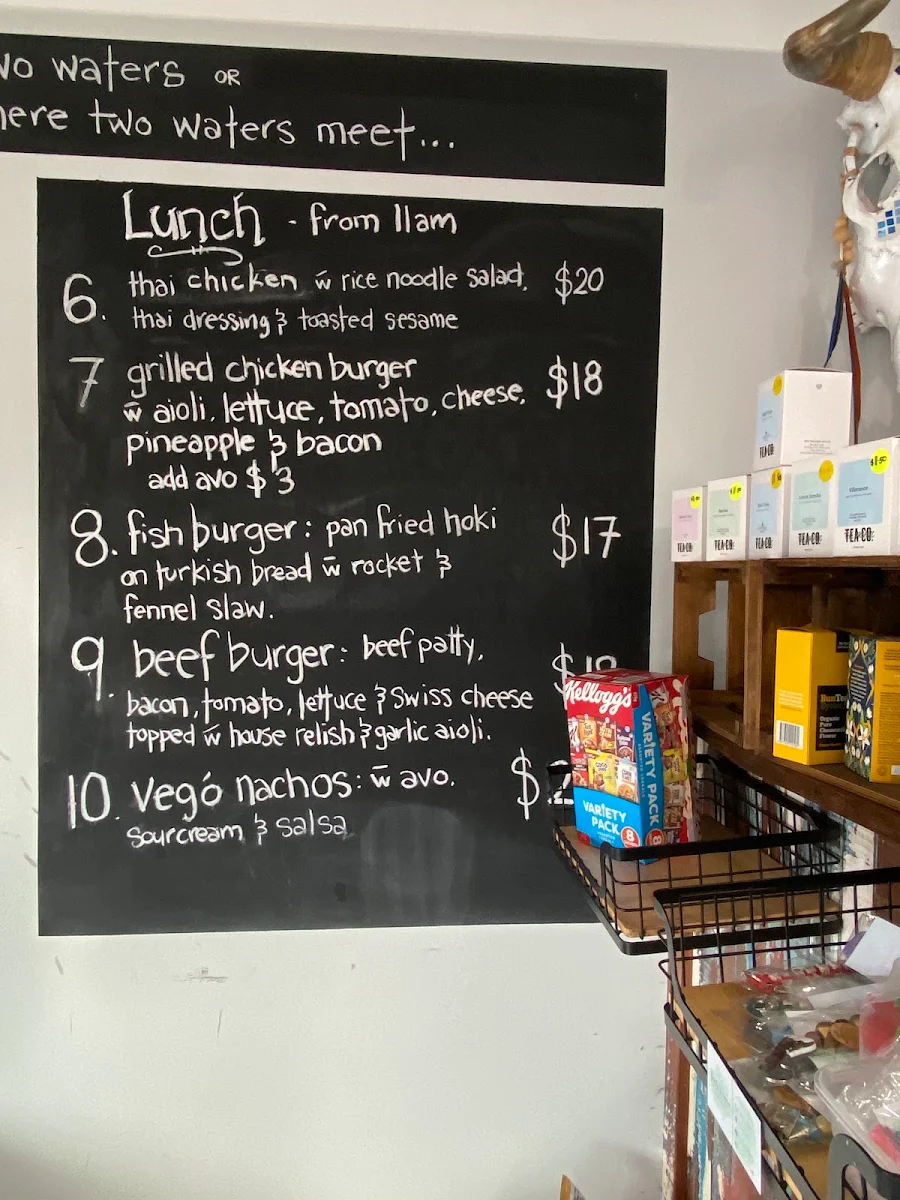 wo waters OR
here two waters meet...
Lunch - from 11am
6. thai chicken w̄ rice noodle salad, $20
thai dressing & toasted sesame
7 grilled chicken burger $18
w̄ aioli, lettuce, tomato, cheese,
pineapple & bacon
add avo $3
8. fish burger: pan fried hoki $17
on turkish bread w̄ rocket &
fennel slaw.
9. beef burger: beef patty,
bacon, tomato, lettuce & Swiss cheese
topped w̄ house relish & garlic aioli.
10. vegó nachos: w̄ avo, $
sourcream & salsa
Kellogg's
VARIETY PACK
VARIETY
PACK 8
TEA CO.
TEA CO.
TEA CO.
TEA CO.
TEA CO.
TEA CO.